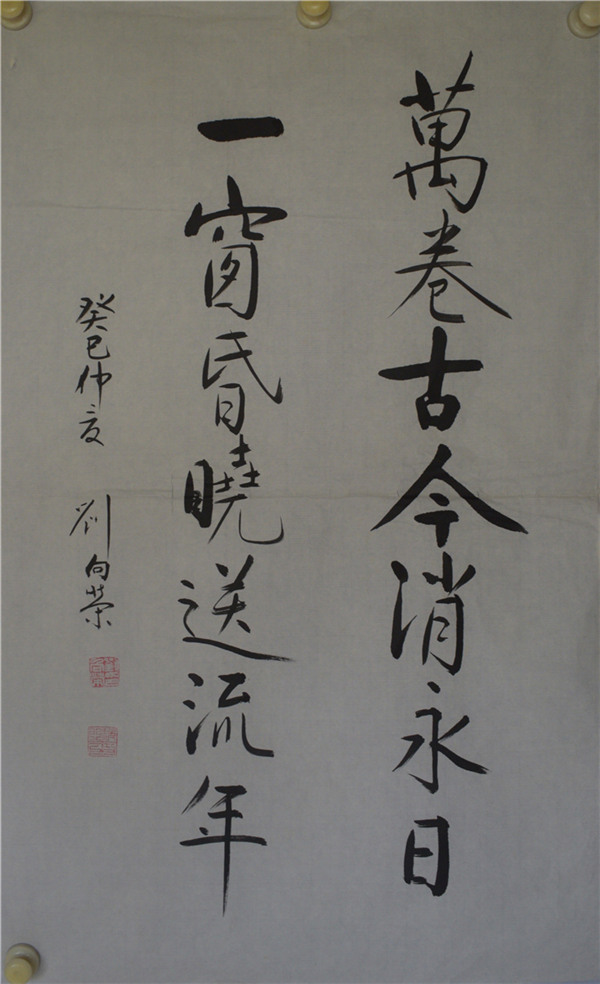 萬卷古今消永日
一窗昏曉送流年
癸巳仲夏 劉向榮